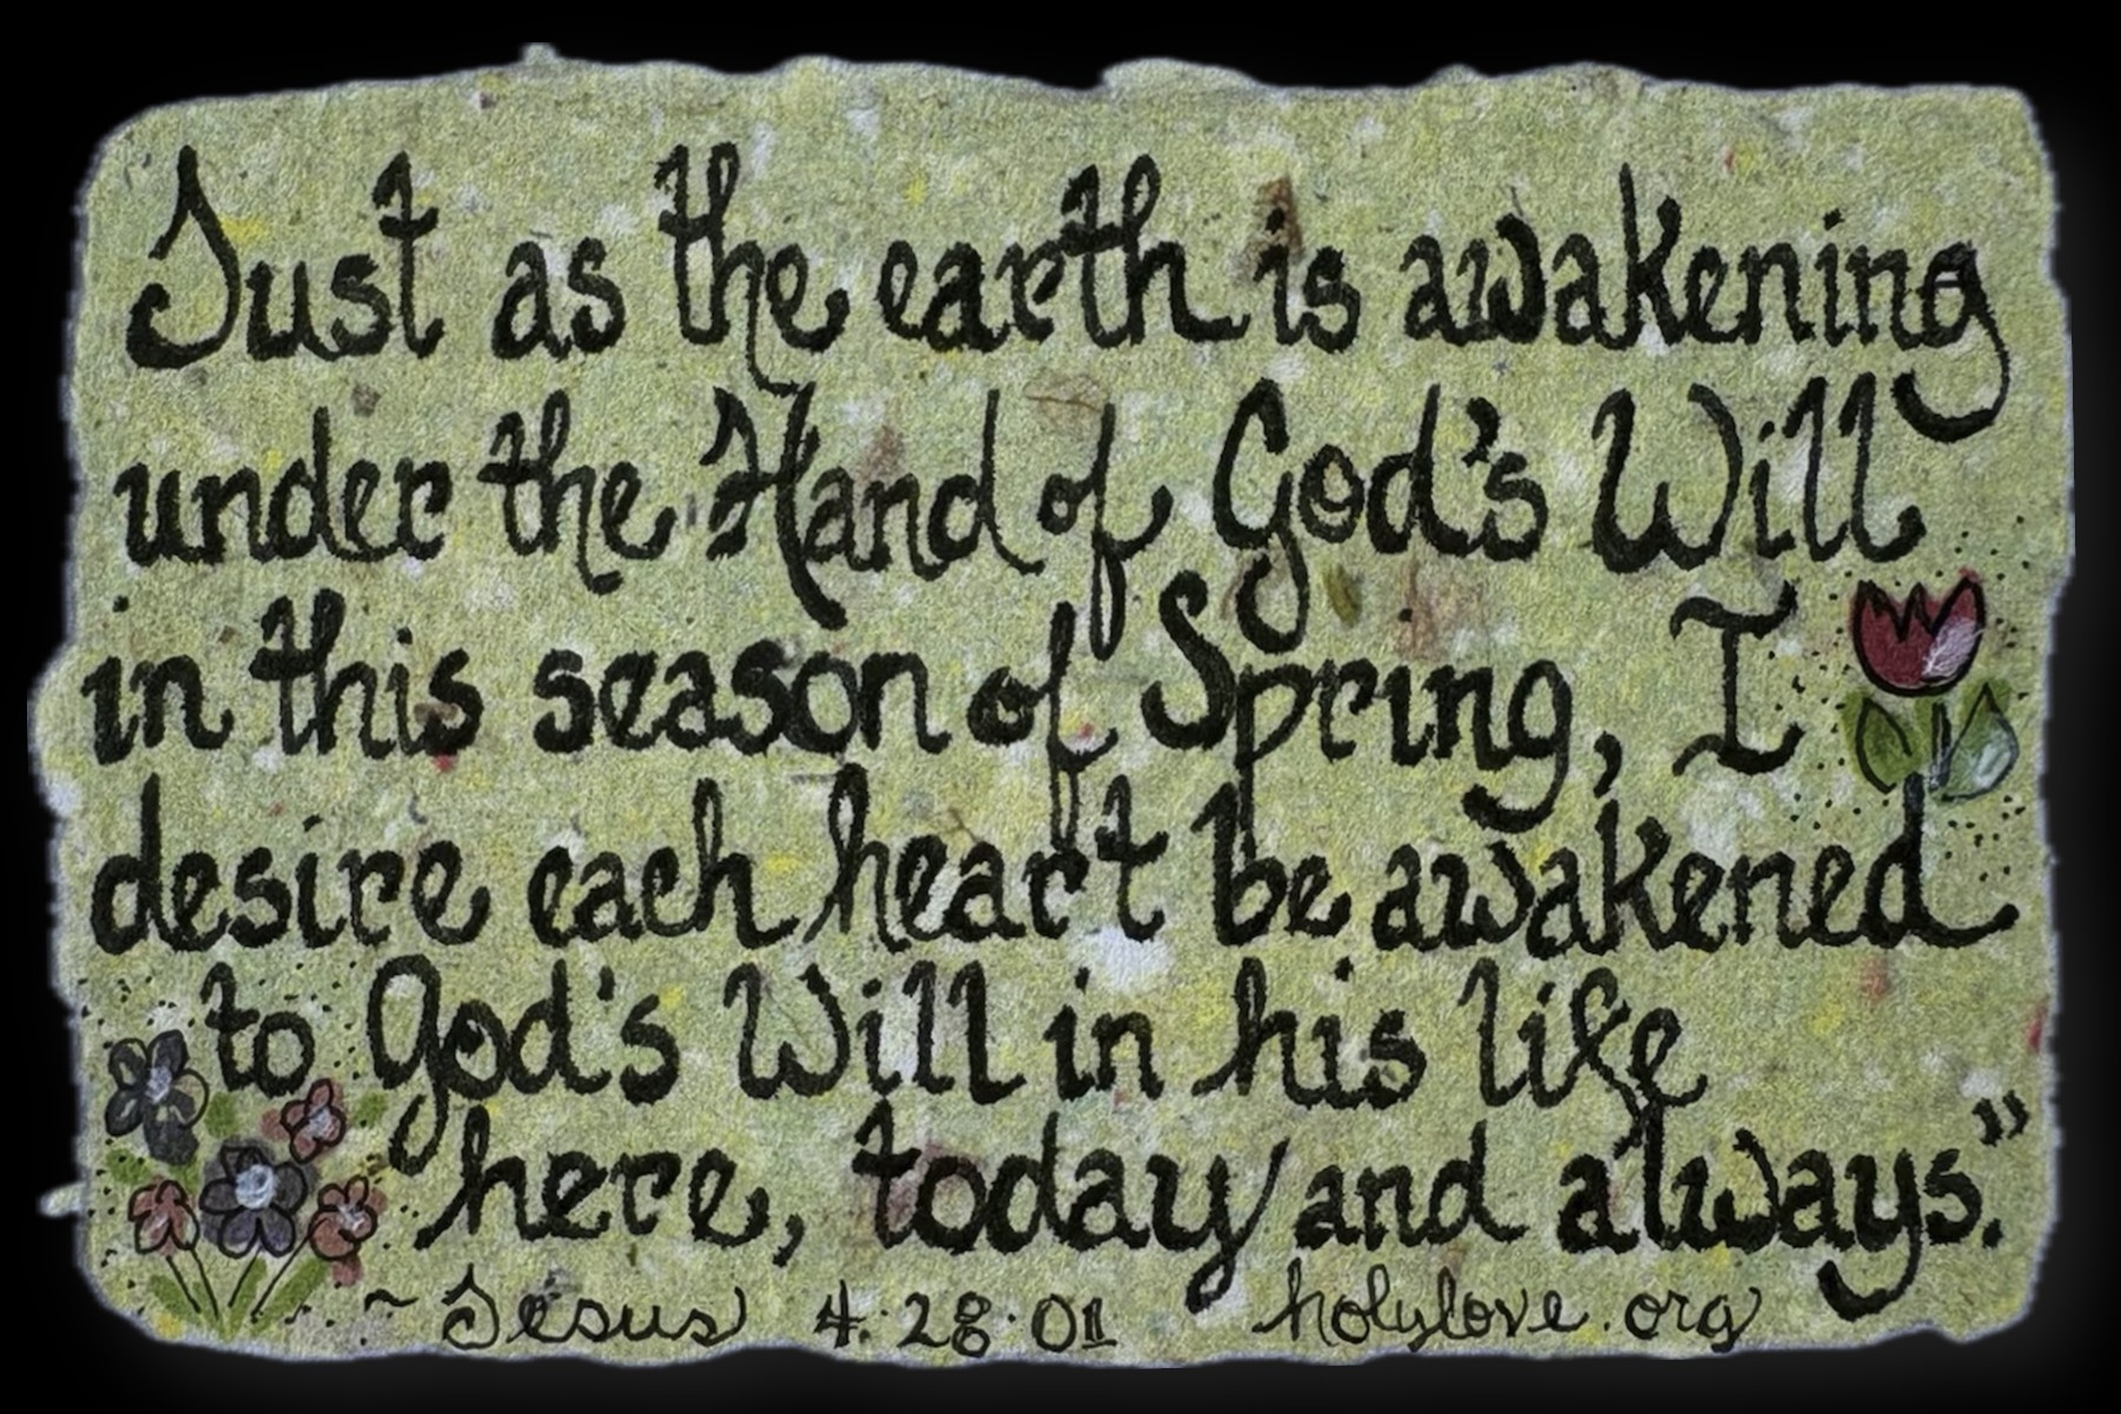 Just as the earth is awakening
under the Hand of God's Will
in this season of Spring, I
desire each heart be awakened
to God's Will in his life
here, today and always."
~Jesus 4.28.01 holylove.org